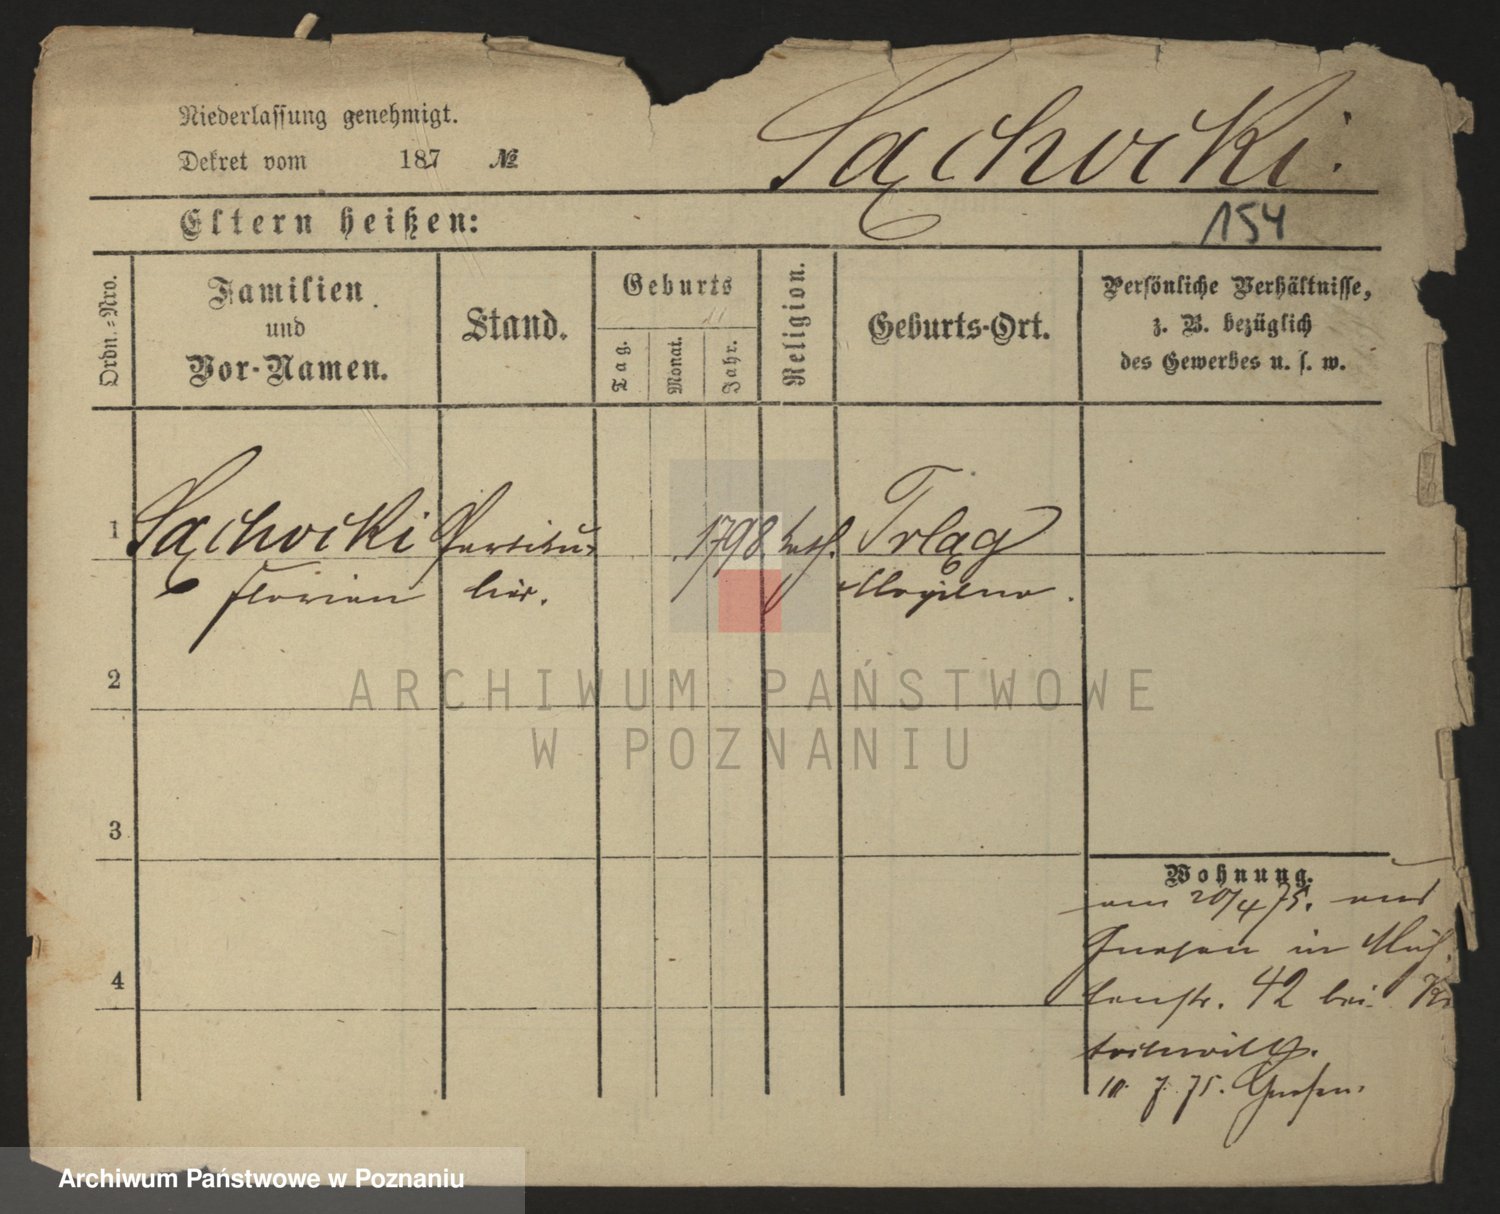 Niederlassung genehmigt.
Dekret vom 187 №
Sąchocki.
Eltern heißen:
154
Ordn.-Nro.
Familien
und
Vor-Namen.
Stand.
Geburts
Tag.
Monat.
Jahr.
Religion.
Geburts-Ort.
Persönliche Verhältnisse,
z. B. bezüglich
des Gewerbes u. s. w.
1 Sąchocki Partiku- 1798 kath. Trląg
Florian lier. Mogilno.
2
ARCHIWUM PAŃSTWOWE
W POZNANIU
3
Wohnung.
am 20/4 75. aus
Gnesen in Müh
4
lenstr. 42 bei
10. 7. 75. Gnesen.
Archiwum Państwowe w Poznaniu